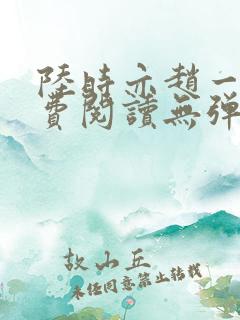 陸時亦趙一
費閱讀無彈
故山丘
未經同意禁止轉載